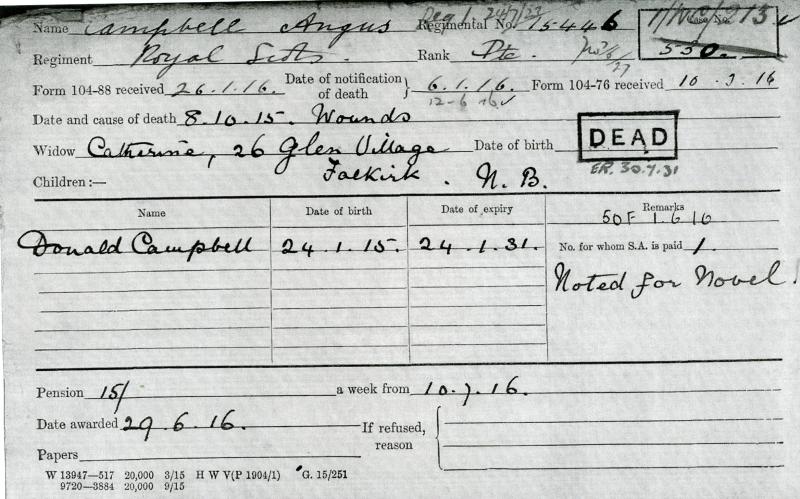 Name Campbell Angus Regimental No. 15446
Reg 1 24/7/23
1/WC/213
Case No.
550.
Regiment Royal Scots. Rank Pte.
Form 104-88 received 26.1.16. Date of notification of death } 6.1.16. Form 104-76 received 10.3.16
12-6-16
Date and cause of death 8.10.15. Wounds
Widow Catherine, 26 Glen Village Date of birth
DEAD
ER. 30.7.31
Children:— Falkirk. N.B.
Name Date of birth Date of expiry Remarks
50F 1.6.16
Donald Campbell 24.1.15. 24.1.31. No. for whom S.A. is paid 1.
Noted for Novel.
Pension 15/ a week from 10.7.16.
Date awarded 29.6.16. If refused, reason
Papers
W 13947—517 20,000 3/15 H W V(P 1904/1) G. 15/251
9720—3884 20,000 9/15